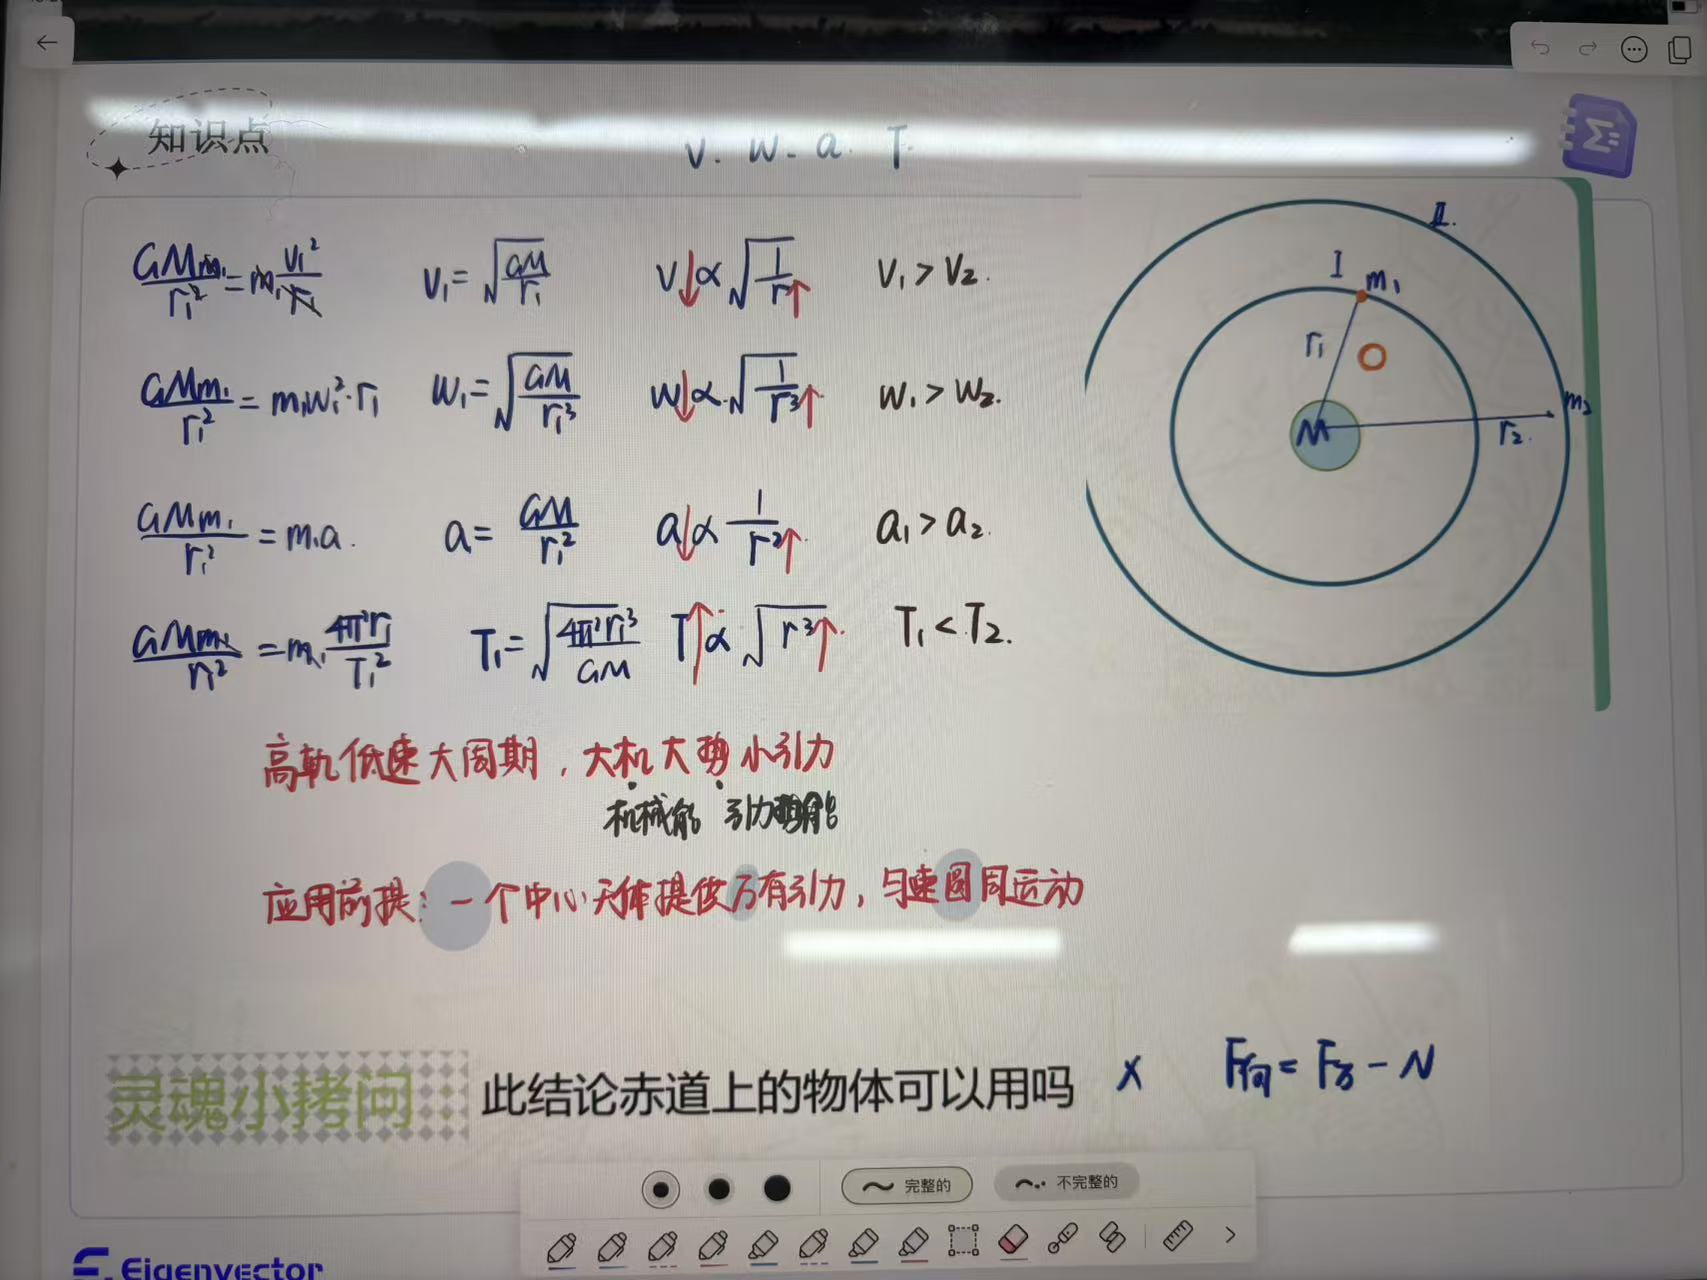 知识点
v. w. a. T.
GMm₁/r₁² = m₁v₁²/r₁ v₁=√(GM/r₁) v↓∝√(1/r↑) v₁>v₂.
GMm₁/r₁² = m₁w₁²·r₁ w₁=√(GM/r₁³) w↓∝√(1/r³↑) w₁>w₂.
GMm₁/r₁² = m₁a. a=GM/r₁² a↓∝1/r²↑ a₁>a₂.
GMm₁/r₁² = m₁4π²r₁/T₁² T₁=√(4π²r₁³/GM) T↑∝√(r³↑) T₁<T₂.
II.
I m₁
r₁
M
m₂
r₂.
高轨低速大周期，大机大势小引力
机械能 引力势能
应用前提：一个中心天体提供万有引力，匀速圆周运动
灵魂小拷问 此结论赤道上的物体可以用吗 × F向=F万-N
完整的 不完整的
Eigenvector